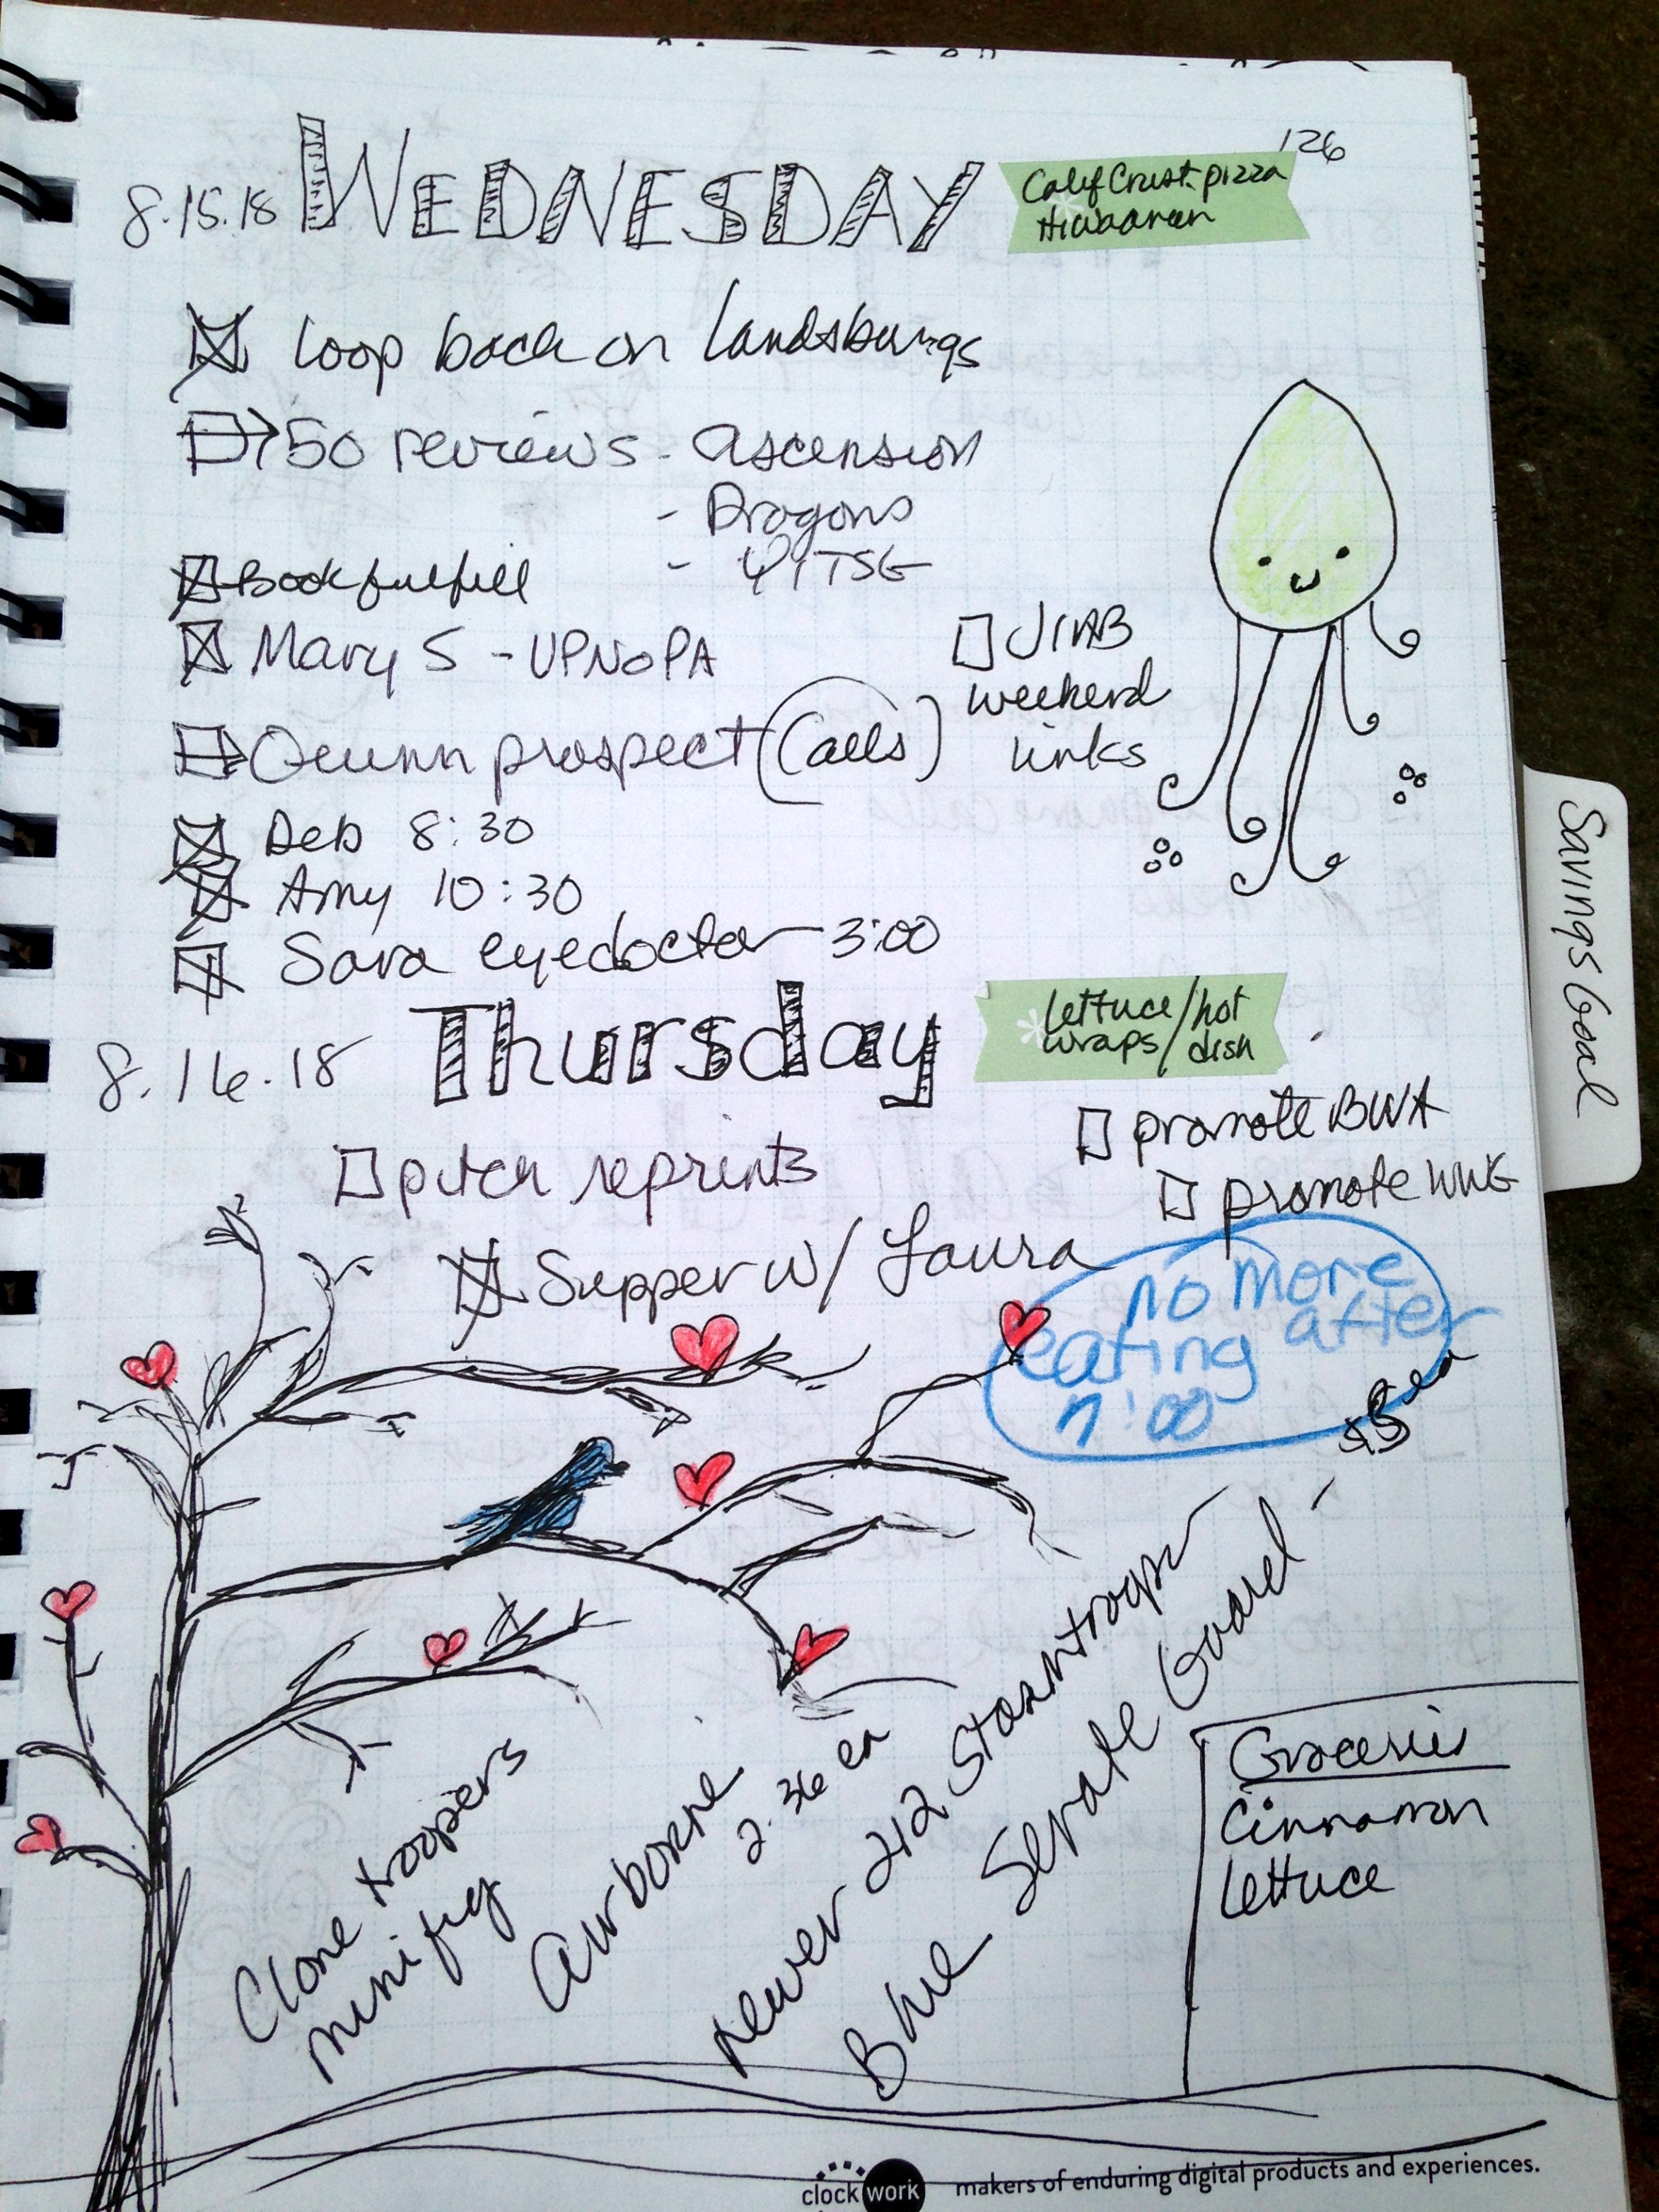 126
8.15.18 WEDNESDAY
Calif Crust pizza
loop back on Landsburgs
50 reviews - ascension
- Dragons
- YITSG
Book fulfill
Mary S - UPNOPA
weekend
links
Quinn prospect (calls)
Deb 8:30
Amy 10:30
Sara eyedoctor 3:00
8.16.18 Thursday
lettuce/hot
wraps/dish
promote BWA
promote WWG
pitch reprints
Supper w/ Laura
no more
eating after
7:00
Clone troopers
minifig
airborne
2.36 ea
newer 212 Stormtrooper -
Blue Senate Guard - $8 ea
Groceries
Cinnamon
Lettuce
Savings Goal
clockwork makers of enduring digital products and experiences.